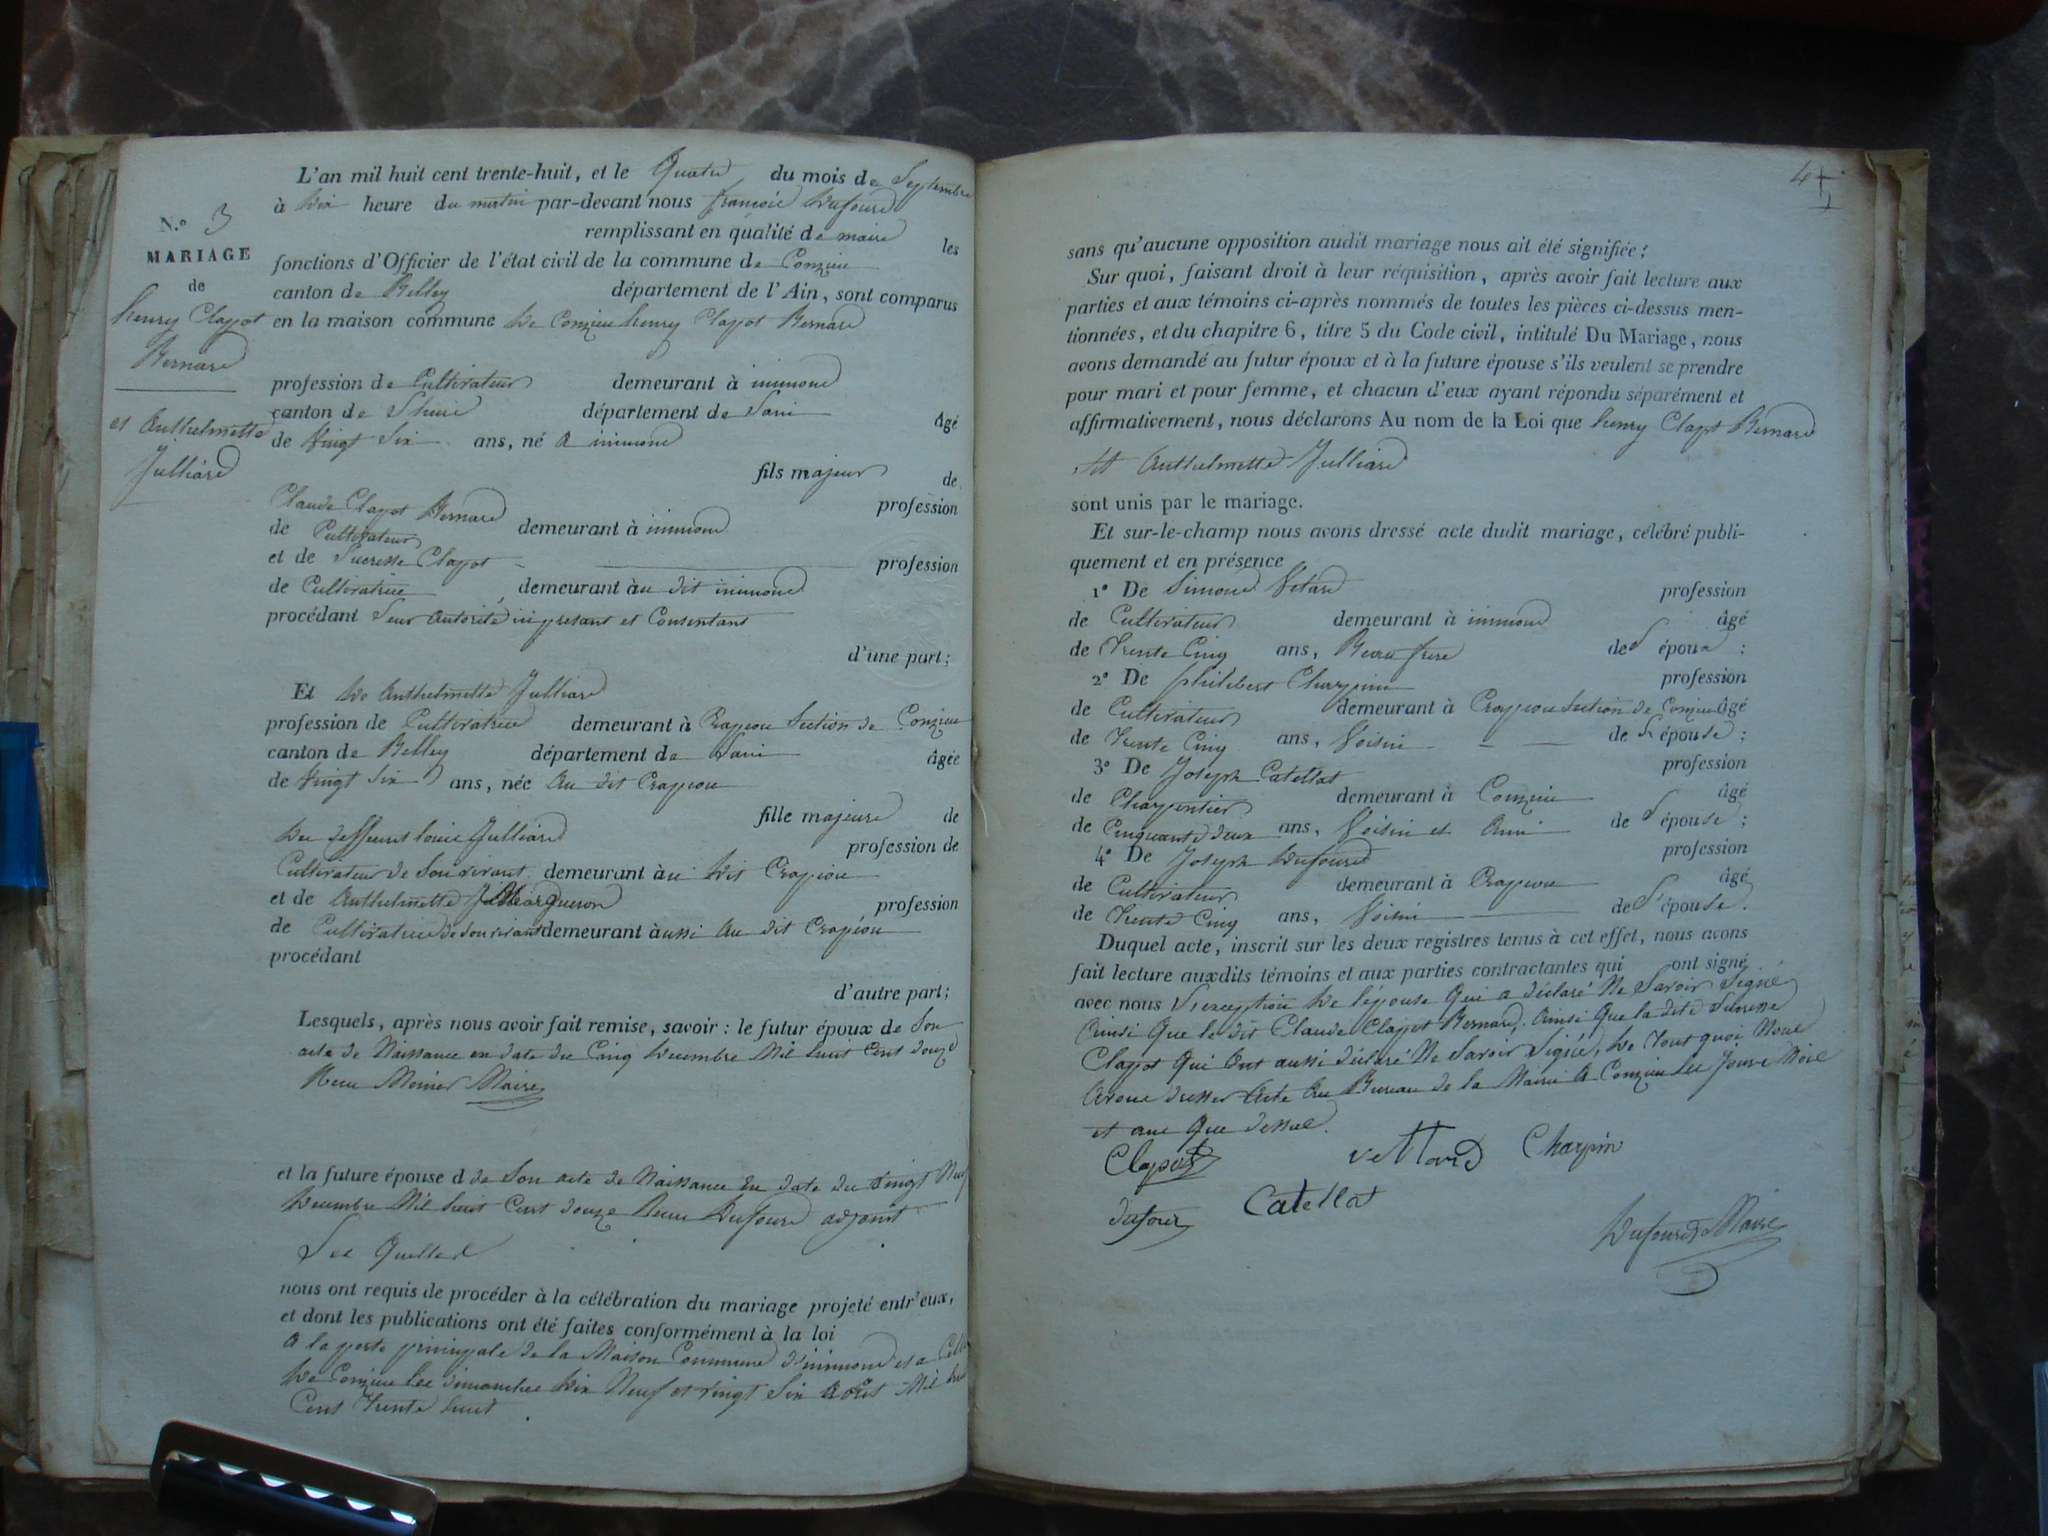 L'an mil huit cent trente-huit, et le Quatre du mois de Septembre
à Dix heure du matin par-devant nous françois Dufourd
remplissant en qualité de maire les
N.º 3
MARIAGE
de
henry Clapot
Bernard
et Anthelmette
Julliard
fonctions d'Officier de l'état civil de la commune de Conzieu
canton de Belley département de l'Ain, sont comparus
en la maison commune De Conzieu henry Clapot Bernard
profession de Cultivateur demeurant à inimond
canton de département de Lain âgé
de Vingt Six ans, né A inimond
fils majeur de
Claude Clapot Bernard profession
de Cultivateur demeurant à inimond
et de Clapot profession
de Cultivatrice demeurant àu dit inimond
procédant Sous autorité ici présant et Consentant
d'une part;
Et De Anthelmette Julliard
profession de Cultivatrice demeurant à Crapiou Section de Conzieu
canton de Belley département de Lain âgée
de Vingt Six ans, née Au dit Crapiou
fille majeure de
Du deffunt louis Julliard profession de
Cultivateur de Son vivant demeurant àu Dit Crapiou
et de Anthelmette Marqueron profession
de Cultivatrice de son vivant demeurant àussi Au dit Crapiou
procédant
d'autre part;
Lesquels, après nous avoir fait remise, savoir : le futur époux de Son
acte de Naissance en date du Cinq Decembre Mil huit Cent douze
Recu Maire
et la future épouse d de Son acte de Naissance En date du Vingt Neuf
Decembre Mil huit Cent douze Recu Dufourd adjoint
Les Quelles
nous ont requis de procéder à la célébration du mariage projeté entr'eux,
et dont les publications ont été faites conformément à la loi
A la porte principale de la Maison Commune d'inimond et a Celle
De Conzieu les dimanches Dix Neuf et Vingt Six Août Mil huit
Cent Trente huit
4
sans qu'aucune opposition audit mariage nous ait été signifiée;
Sur quoi, faisant droit à leur réquisition, après avoir fait lecture aux
parties et aux témoins ci-après nommés de toutes les pièces ci-dessus men-
tionnées, et du chapitre 6, titre 5 du Code civil, intitulé Du Mariage, nous
avons demandé au futur époux et à la future épouse s'ils veulent se prendre
pour mari et pour femme, et chacun d'eux ayant répondu séparément et
affirmativement, nous déclarons Au nom de la Loi que henry Clapot Bernard
Et Anthelmette Julliard
sont unis par le mariage.
Et sur-le-champ nous avons dressé acte dudit mariage, célébré publi-
quement et en présence
1º De Simond Vetard profession
de Cultivateur demeurant à inimond âgé
de Trente Cinq ans, Beau frere de l'époux ;
2º De philibert Charpin profession
de Cultivateur demeurant à Crapiou Section de Conzieu âgé
de Trente Cinq ans, Voisin de L'épouse ;
3º De Joseph Catellat profession
de Charpentier demeurant à Conzieu âgé
de Cinquante deux ans, Voisin et Ami de L'épouse ;
4º De Joseph Dufourd profession
de Cultivateur demeurant à Crapiou âgé
de Trente Cinq ans, Voisin de L'épouse.
Duquel acte, inscrit sur les deux registres tenus à cet effet, nous avons
fait lecture auxdits témoins et aux parties contractantes qui ont signé
avec nous L'exception De l'épouse Qui a déclaré Ne Savoir Signé
Ainsi Que le dit Claude Clapot Bernard. Ainsi Que la dite
Clapot Qui Ont aussi déclaré Ne Savoir Signé, De Tout quoi Nous
Avons dresser Acte Au Bureau de la Mairie A Conzieu Les Jours Mois
et ans Que dessus.
Clapot vettard Charpin
dufour Catellat
Dufourd Maire